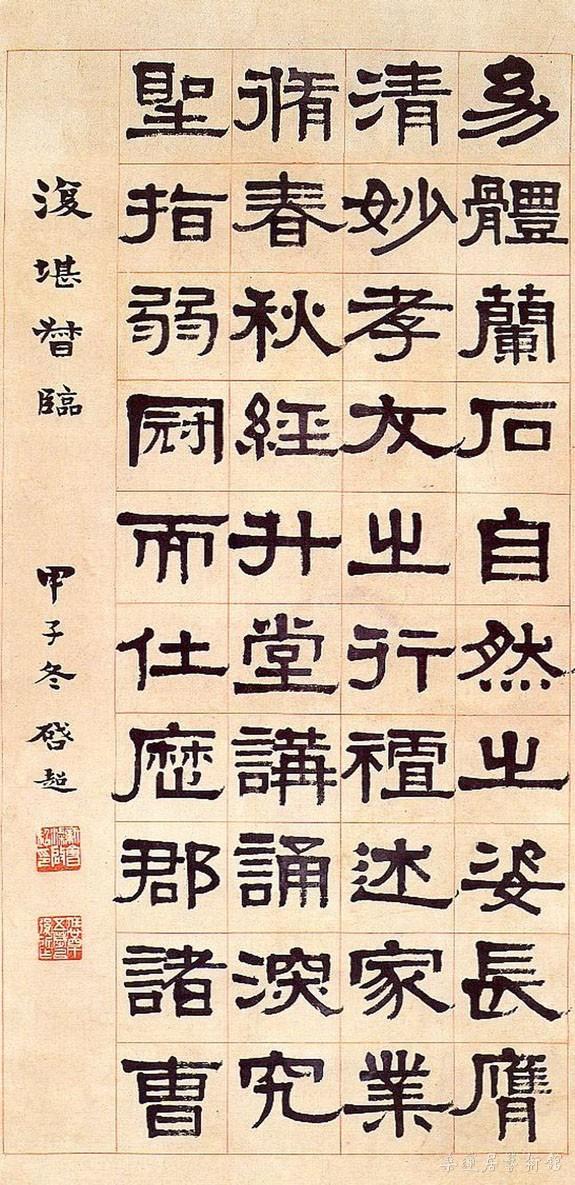 幼體蘭石自然之姿長膺
清妙孝友之行襢述家業
脩春秋經升堂講誦深究
聖指弱冠而仕歷郡諸曹
復堪督臨
甲子冬啓超